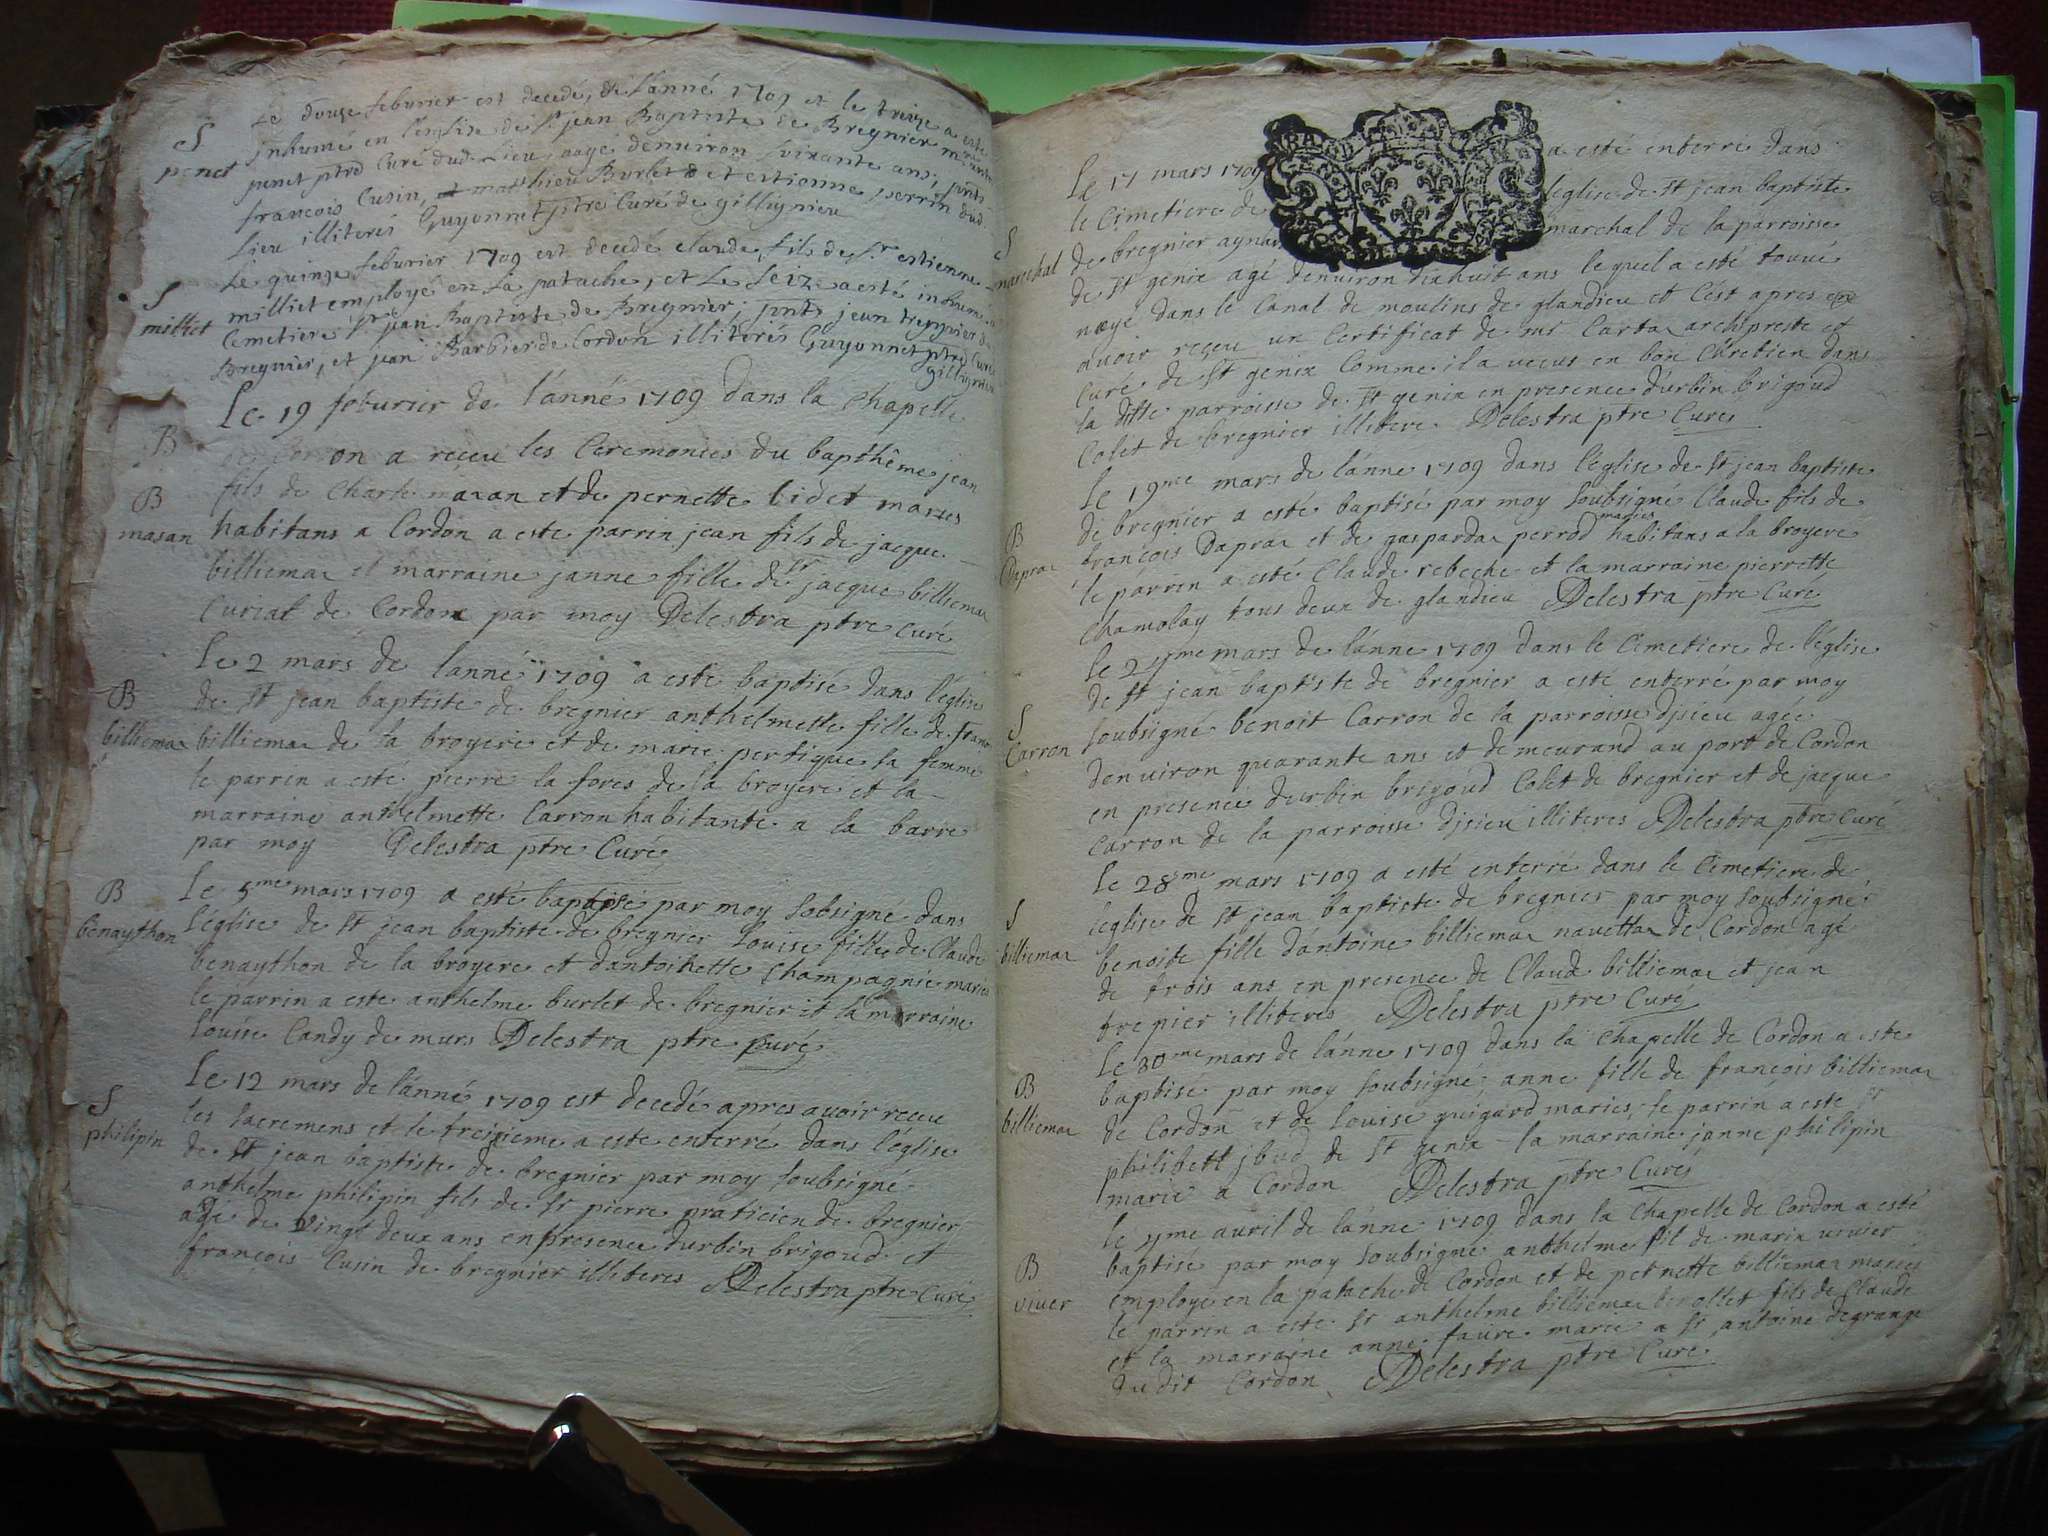 S
penet
Le douze feburier est decedé, de l'anné 1709 et le treize a esté
inhumé en l'englise de st jean Baptiste de Bregnier
penet ptre Curé dud. Lieu, aagé denuiron soixante ans, pnts
francois Cusin, matthieu Burlet et estienne perrin dud.
Lieu illiterés Guyonnet ptre Curé de gillignieu
S
milliet
Le quinze feburier 1709 est decedé claude, fils de sr estienne
milliet employé en la patache, et Le seiz. a esté inhumé
Cemetiere st jean Baptiste de Bregnier, pnts jean treppier de
Bregnier, et jean Barbier de Cordon illiterés Guyonnet ptre Curé
gillignieu
B
Le 19 feburier de l'anné 1709 dans la chapelle
on a reçeu les Ceremonies du bapthême jean
B
masan
fils de Charle masan et de pernette bidet maries
habitans a Cordon a este parrin jean fils de jacque
billiemaz et marraine janne fille de sr jacque billiemaz
Curial de Cordon par moy Delestra ptre curé
B
billiemaz
Le 2 mars de lanné 1709 a este baptisé dans l'église
de St jean baptiste de bregnier anthelmette fille de franc
billiemaz de la broyere et de marie pertique sa femme
le parrin a esté pierre la fores de la broyere et la
marraine anthelmette Carron habitante a la barre
par moy Delestra ptre Curé
B
benaython
Le 5me mars 1709 a esté baptisé par moy sobsigne dans
l'église de St jean baptiste de bregnier Louise fille de Claude
benaython de la broyere et dantoihette Champagnie maries
le parrin a este anthelme burlet de bregnier et la marraine
Louise Candy de murs Delestra ptre curé
S
philipin
Le 12 mars de l'anné 1709 est decedé apres avoir reçeu
les sacremens et le treisieme a este enterré dans l'église
de St jean baptiste de bregnier par moy soubsigné
anthelme philipin fils de sr pierre praticien de bregnier
age de vingt deux ans en presence durbin brigoud et
francois Cusin de bregnier illiteres Delestra ptre Curé
S
marechal
Le 17 mars 1709 a esté enterre dans
le Cimetiere de l'église de St jean baptiste
de bregnier aynard marchal de la parroisse
de St genix agé denuiron dixhuit ans lequel a esté touué
noyé dans le Canal de moulins de glandieu et c'est apres en
auoir reçeu un Certificat de mr Cartaz archipreste et
Curé de St genix Comme il a vecus en bon Chretien dans
la ditte parroisse de St genix en presence durbin brigoud
Colet de bregnier illitere Delestra ptre Curé
B
Dapraz
Le 19me mars de l'anne 1709 dans l'église de St jean baptiste
de bregnier a esté baptisé par moy soubsigné Claude fils de
francois Dapraz et de gaspardaz perrod maries habitans a la broyere
le parrin a esté Claude rebeche et la marraine pierrette
Chamolay tous deux de glandieu Delestra ptre Curé
S
Carron
Le 27me mars de l'anne 1709 dans le Cimetiere de l'église
de St jean baptiste de bregnier a esté enterré par moy
soubsigné benoit Carron de la parroisse djsieu agée
denuiron quarante ans et demeurand au port de Cordon
en presence durbin brigoud Colet de bregnier et de jacque
Carron de la parroisse djsieu illiteres Delestra ptre Curé
S
billiemaz
Le 28me mars 1709 a esté enterré dans le Cimetiere de
leglise de St jean baptiste de bregnier par moy soubsigné
benoite fille dantoine billiemaz navettaz de Cordon agé
de trois ans en presence de Claude billiemaz et jean
trepier illiteres Delestra ptre Curé
B
billiemaz
Le 30me mars de l'anne 1709 dans la Chapelle de Cordon a este
baptise par moy soubsigné anne fille de francois billiemaz
de Cordon et de Louise guigard maries, le parrin a este sr
philibett jbud de St genix la marraine janne philipin
marie a Cordon Delestra ptre Curé
B
viuer
Le 7me auril de l'anne 1709 dans la Chapelle de Cordon a esté
baptisé par moy soubsigné anthelme fil de marin viuier
employé en la patache de Cordon et de pernette billiemaz maries
le parrin a este sr anthelme billiemaz fils de Claude
et la marraine anne faure marie a sr antoine degrange
du dit Cordon Delestra ptre Curé